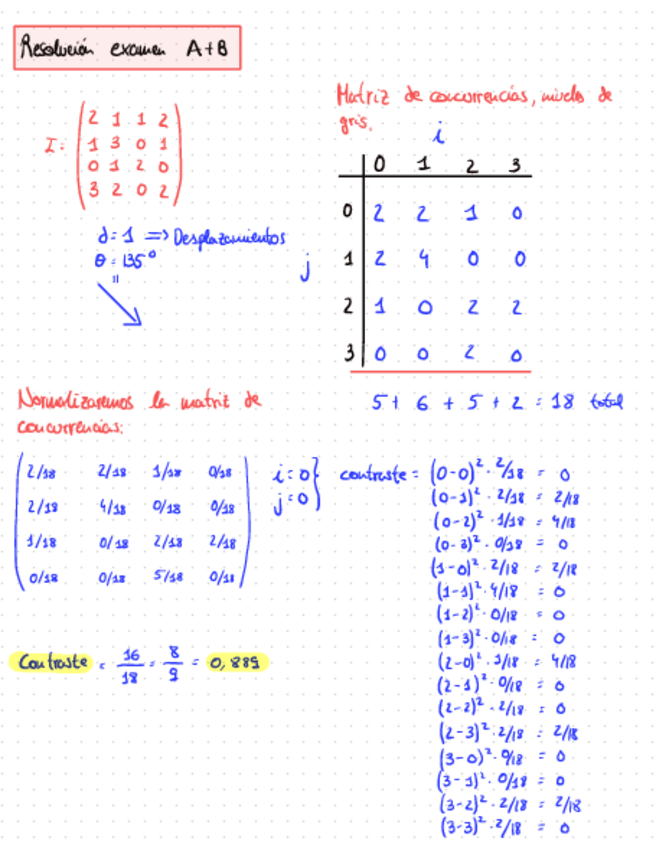 Resolución examen A+B
I: (2 1 1 2
1 3 0 1
0 1 2 0
3 2 0 2)
d=1 => Desplazamientos
θ=135°
"
Matriz de concurrencias, niveles de
gris.
i
0 1 2 3
0 2 2 1 0
j 1 2 4 0 0
2 1 0 2 2
3 0 0 2 0
5+ 6 + 5 + 2 = 18 total
Normalizaremos la matriz de
concurrencias:
2/18 2/18 1/18 0/18
2/18 4/18 0/18 0/18
1/18 0/18 2/18 2/18
0/18 0/18 5/18 0/18
i=0
j=0
contraste = (0-0)² · 2/18 = 0
(0-1)² · 2/18 = 2/18
(0-2)² · 1/18 = 4/18
(0-3)² · 0/18 = 0
(1-0)² · 2/18 = 2/18
(1-1)² · 4/18 = 0
(1-2)² · 0/18 = 0
(1-3)² · 0/18 = 0
(2-0)² · 1/18 = 4/18
(2-1)² · 0/18 = 0
(2-2)² · 2/18 = 0
(2-3)² · 2/18 = 2/18
(3-0)² · 0/18 = 0
(3-1)² · 0/18 = 0
(3-2)² · 2/18 = 2/18
(3-3)² · 2/18 = 0
Contraste = 16/18 = 8/9 = 0,889